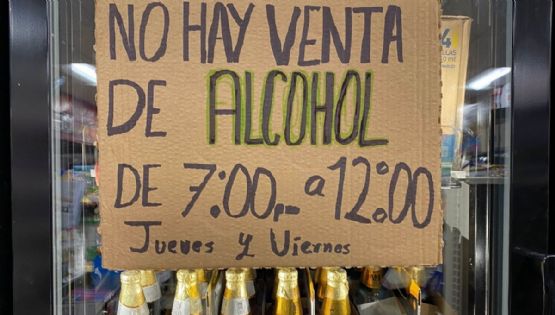 NO HAY VENTA
DE ALCOHOL
DE 7:00pm a 12:00
Jueves y Viernes